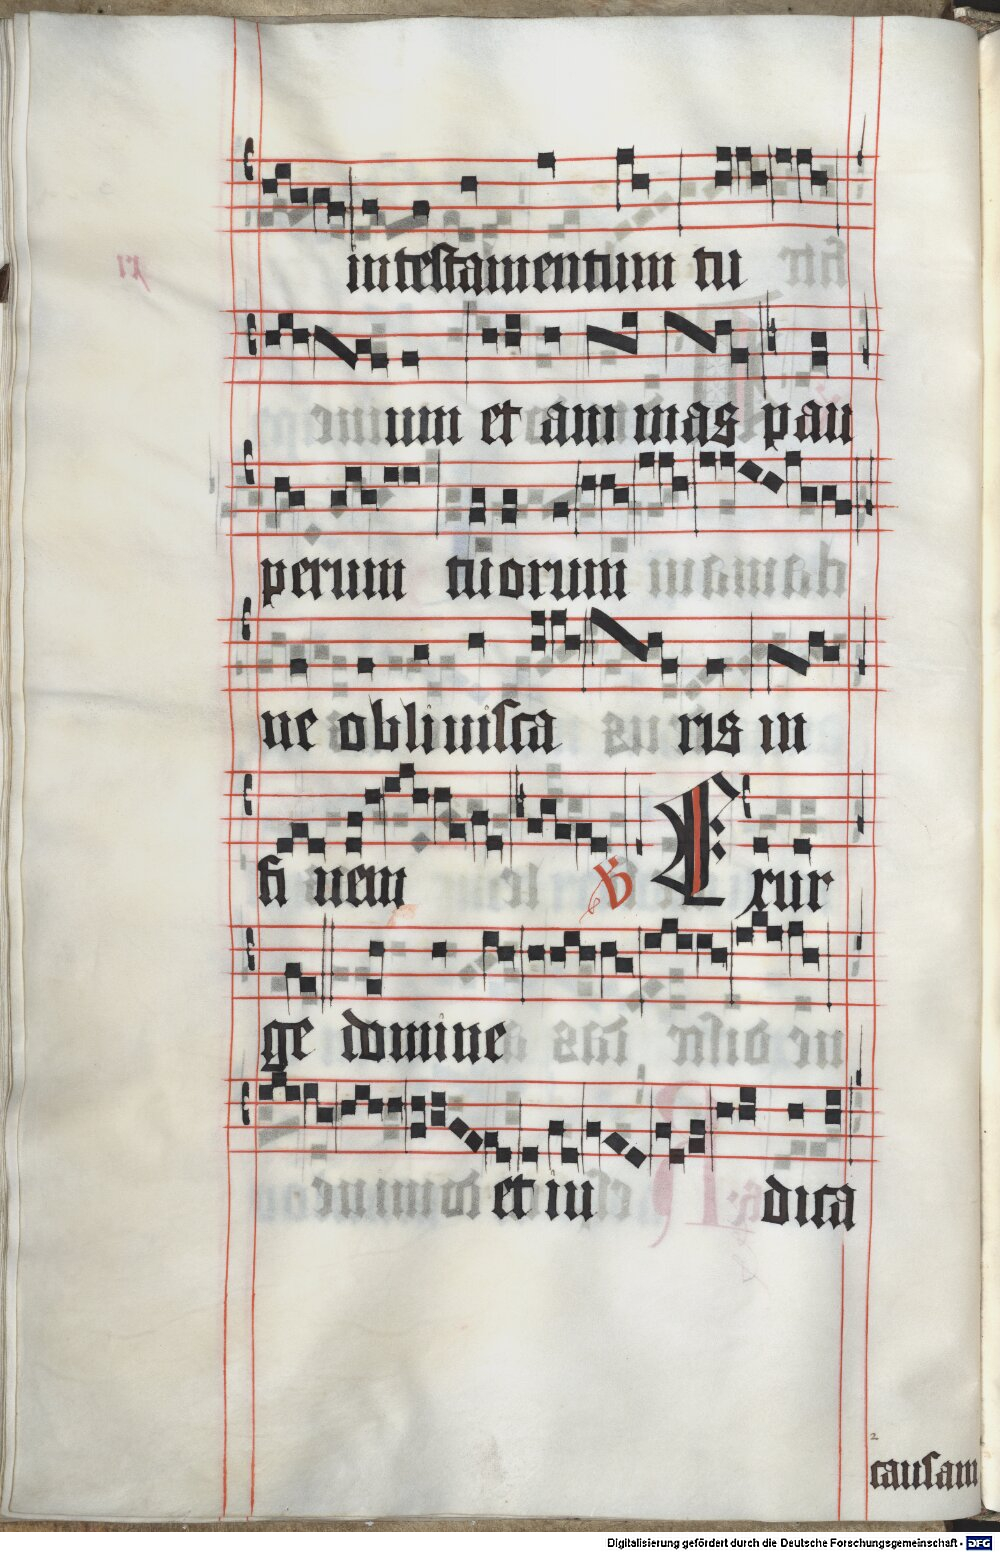 in testamentum tu
um et animas pau
perum tuorum
ne obliuisca ris in
fi nem ℣ Exur
ge domine
et iu dica
2
causam
Digitalisierung gefördert durch die Deutsche Forschungsgemeinschaft - DFG